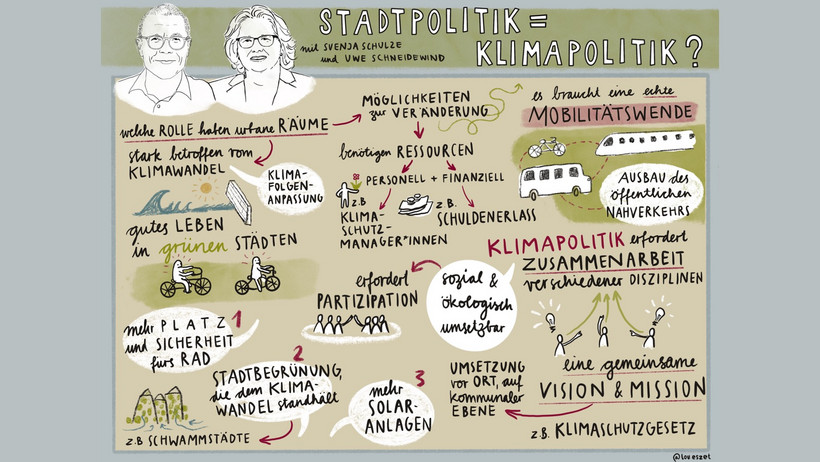 STADTPOLITIK =
KLIMAPOLITIK?
mit SVENJA SCHULZE
und UWE SCHNEIDEWIND
welche ROLLE haben urbane RÄUME
stark betroffen vom
KLIMAWANDEL
KLIMA-
FOLGEN-
ANPASSUNG
gutes LEBEN
in grünen STÄDTEN
MÖGLICHKEITEN
zur VERÄNDERUNG
benötigen RESSOURCEN
PERSONELL + FINANZIELL
z.B
KLIMA-
SCHUTZ-
MANAGER*INNEN
z.B.
SCHULDENERLASS
es braucht eine echte
MOBILITÄTSWENDE
AUSBAU des
öffentlichen
NAHVERKEHRS
KLIMAPOLITIK erfordert
ZUSAMMENARBEIT
verschiedener DISZIPLINEN
sozial &
ökologisch
umsetzbar
erfordert
PARTIZIPATION
mehr PLATZ
und SICHERHEIT
fürs RAD
1
2
STADTBEGRÜNUNG,
die dem KLIMA-
WANDEL standhält
z.B SCHWAMMSTÄDTE
3
mehr
SOLAR-
ANLAGEN
eine gemeinsame
VISION & MISSION
UMSETZUNG
vor ORT, auf
kommunaler
EBENE
z.B. KLIMASCHUTZGESETZ
@loveszet